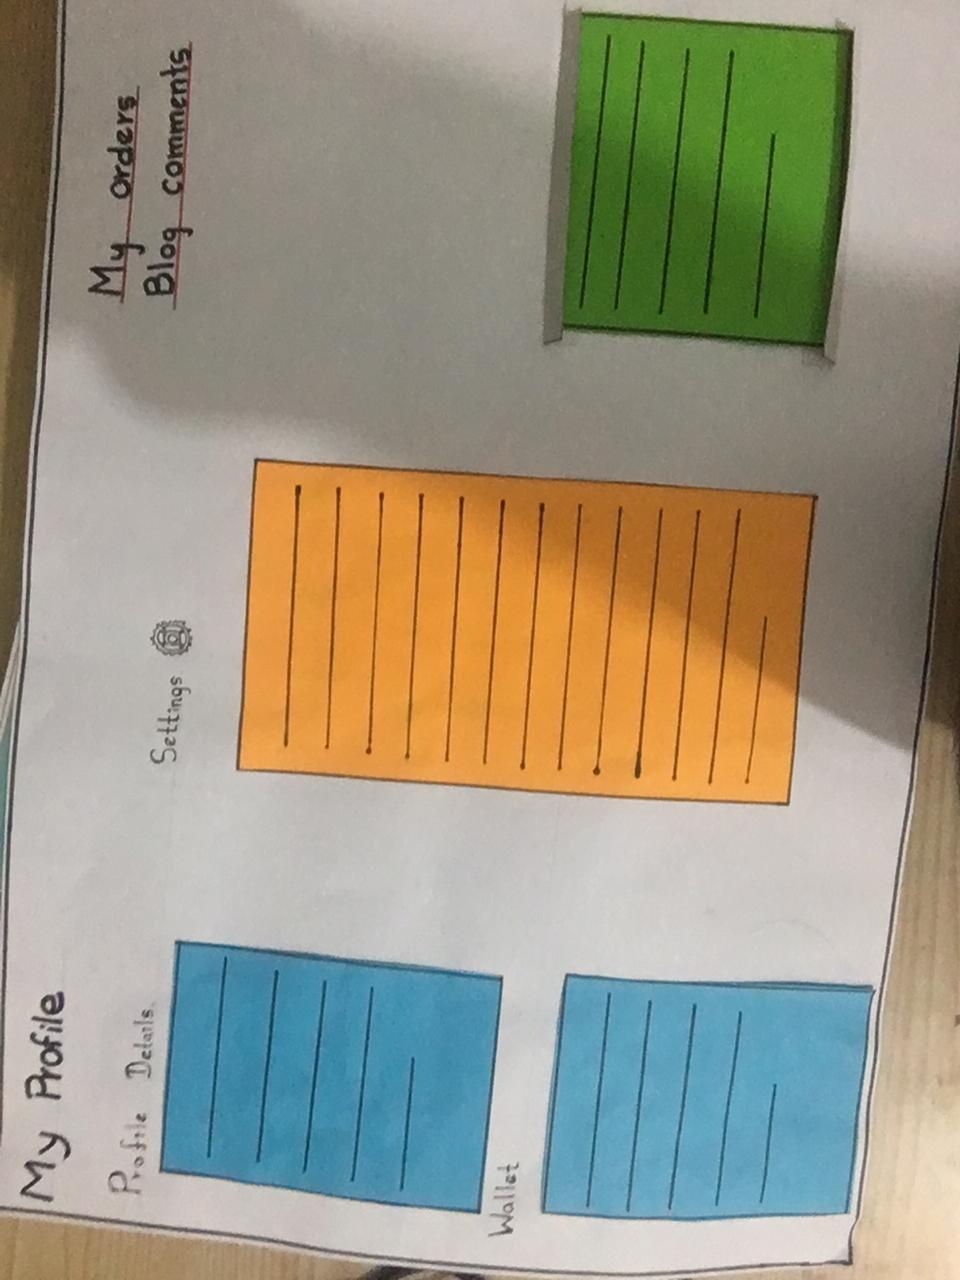 My Profile
Profile Details
Wallet
Settings
My orders
Blog comments